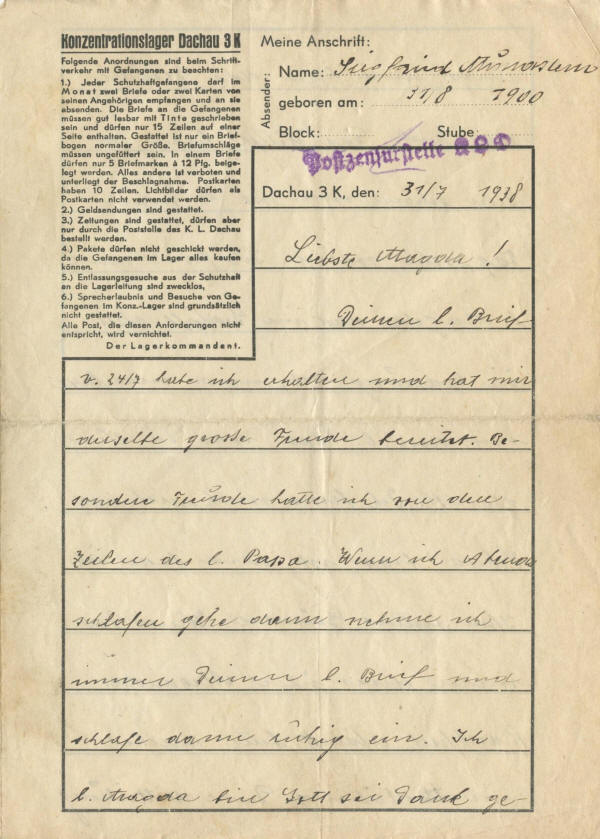 Konzentrationslager Dachau 3 K
Folgende Anordnungen sind beim Schrift-
verkehr mit Gefangenen zu beachten:
1.) Jeder Schutzhaftgefangene darf im
Monat zwei Briefe oder zwei Karten von
seinen Angehörigen empfangen und an sie
absenden. Die Briefe an die Gefangenen
müssen gut lesbar mit Tinte geschrieben
sein und dürfen nur 15 Zeilen auf einer
Seite enthalten. Gestattet ist nur ein Brief-
bogen normaler Größe. Briefumschläge
müssen ungefüttert sein. In einem Briefe
dürfen nur 5 Briefmarken à 12 Pfg. beige-
legt werden. Alles andere ist verboten und
unterliegt der Beschlagnahme. Postkarten
haben 10 Zeilen. Lichtbilder dürfen als
Postkarten nicht verwendet werden.
2.) Geldsendungen sind gestattet.
3.) Zeitungen sind gestattet, dürfen aber
nur durch die Poststelle des K. L. Dachau
bestellt werden.
4.) Pakete dürfen nicht geschickt werden,
da die Gefangenen im Lager alles kaufen
können.
5.) Entlassungsgesuche aus der Schutzhaft
an die Lagerleitung sind zwecklos,
6.) Sprecherlaubnis und Besuche von Ge-
fangenen im Konz.-Lager sind grundsätzlich
nicht gestattet.
Alle Post, die diesen Anforderungen nicht
entspricht, wird vernichtet.
Der Lagerkommandent.
Absender:
Meine Anschrift:
Name: Siegfried
geboren am: 31/8 1900
Block: Stube
Postzensurstelle
Dachau 3 K, den: 31/7 1938
Liebste Magda!
Deinen l. Brief
v. 24/7 habe ich erhalten und hat mir
derselbe grosse Freude bereitet. Be-
sondere Freude hatte ich von den
Zeilen des l. Papa. Wenn ich Abends
schlafen gehe dann nehme ich
immer Deinen l. Brief und
schlafe dann ruhig ein. Ich
l. Magda bin Gott sei Dank ge-